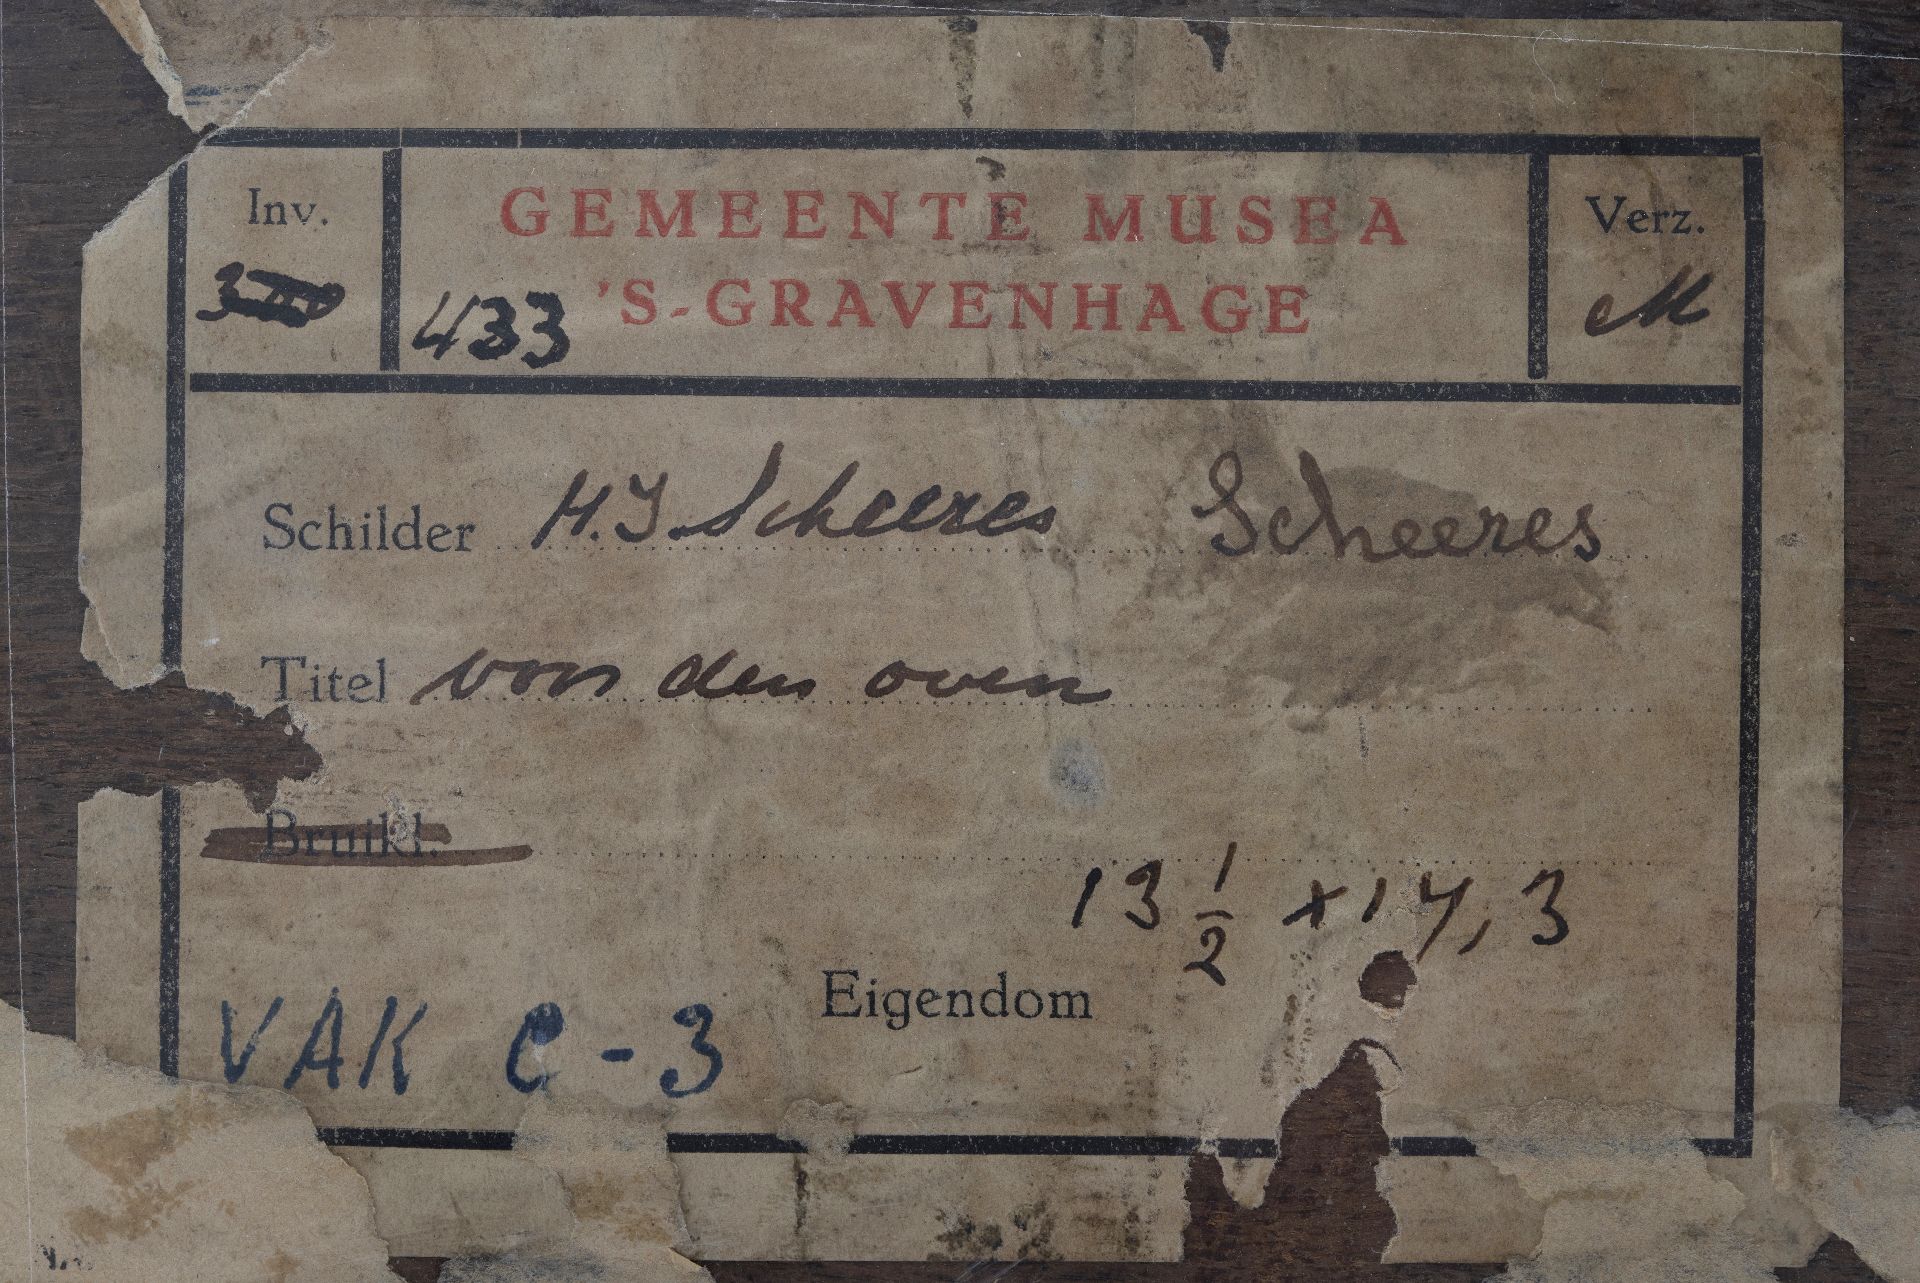 Inv. GEMEENTE MUSEA Verz.
433 'S-GRAVENHAGE M
Schilder H.J. Scheeres Scheeres
Titel voor den oven
Bruikl.
13 1/2 x 17,3
Eigendom
VAK C-3